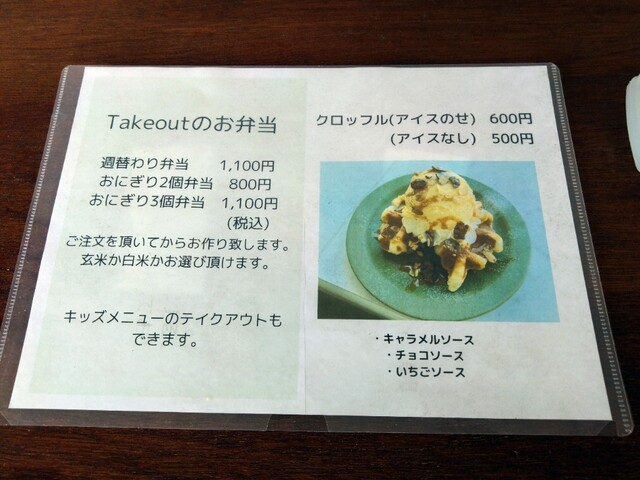 Takeoutのお弁当
週替わり弁当 1,100円
おにぎり2個弁当 800円
おにぎり3個弁当 1,100円
(税込)
ご注文を頂いてからお作り致します。
玄米か白米かお選び頂けます。
キッズメニューのテイクアウトも
できます。
クロッフル(アイスのせ) 600円
(アイスなし) 500円
・キャラメルソース
・チョコソース
・いちごソース